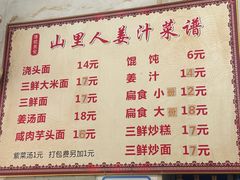 山里人姜汁菜谱
浇头面 14元
三鲜大米面 17元
三鲜面 17元
姜汤面 18元
咸肉芋头面 16元
馄饨 6元
姜汁 14元
扁食 小 12元
扁食 大 17元
三鲜炒糕 17元
三鲜炒面 17元
紫菜汤1元 打包费另加1元